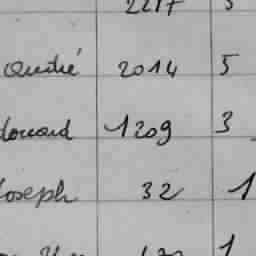 2217 3
André 2014 5
douard 1209 3
Joseph 32 1
1